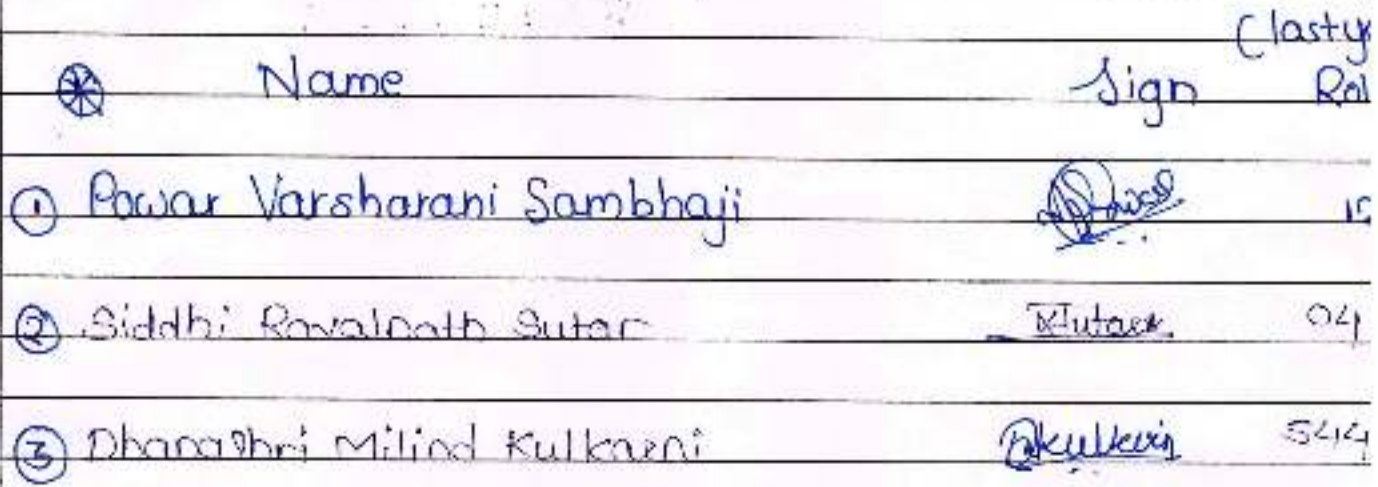 (lasty
Name Sign Rol
① Powar Varsharani Sambhaji
② Siddhi Ravalnath Sutar Sutar 04
③ Dhanashri Milind Kulkarni Dkulkarni 544